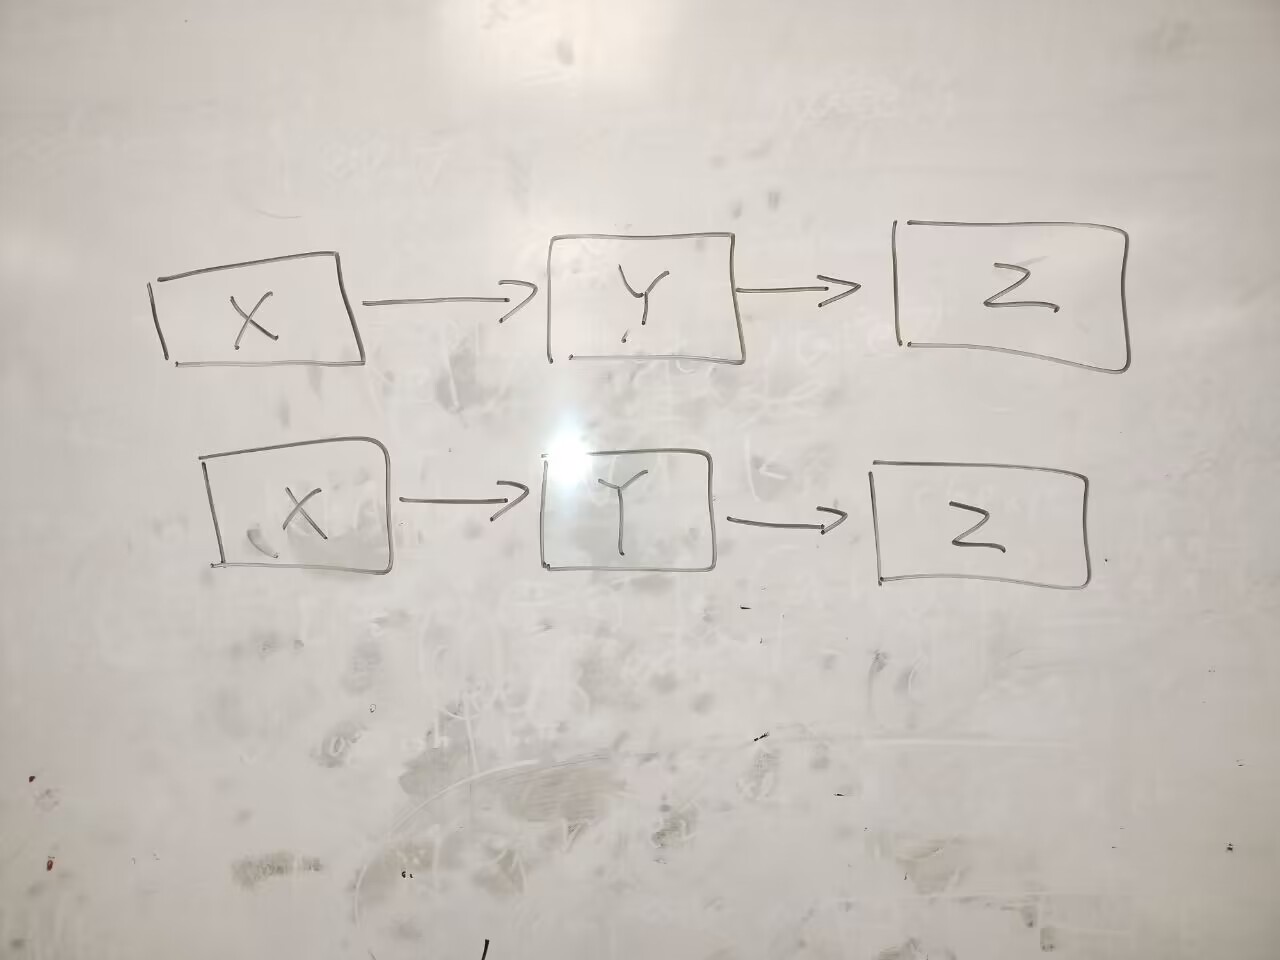 X → Y → Z
X → Y → Z